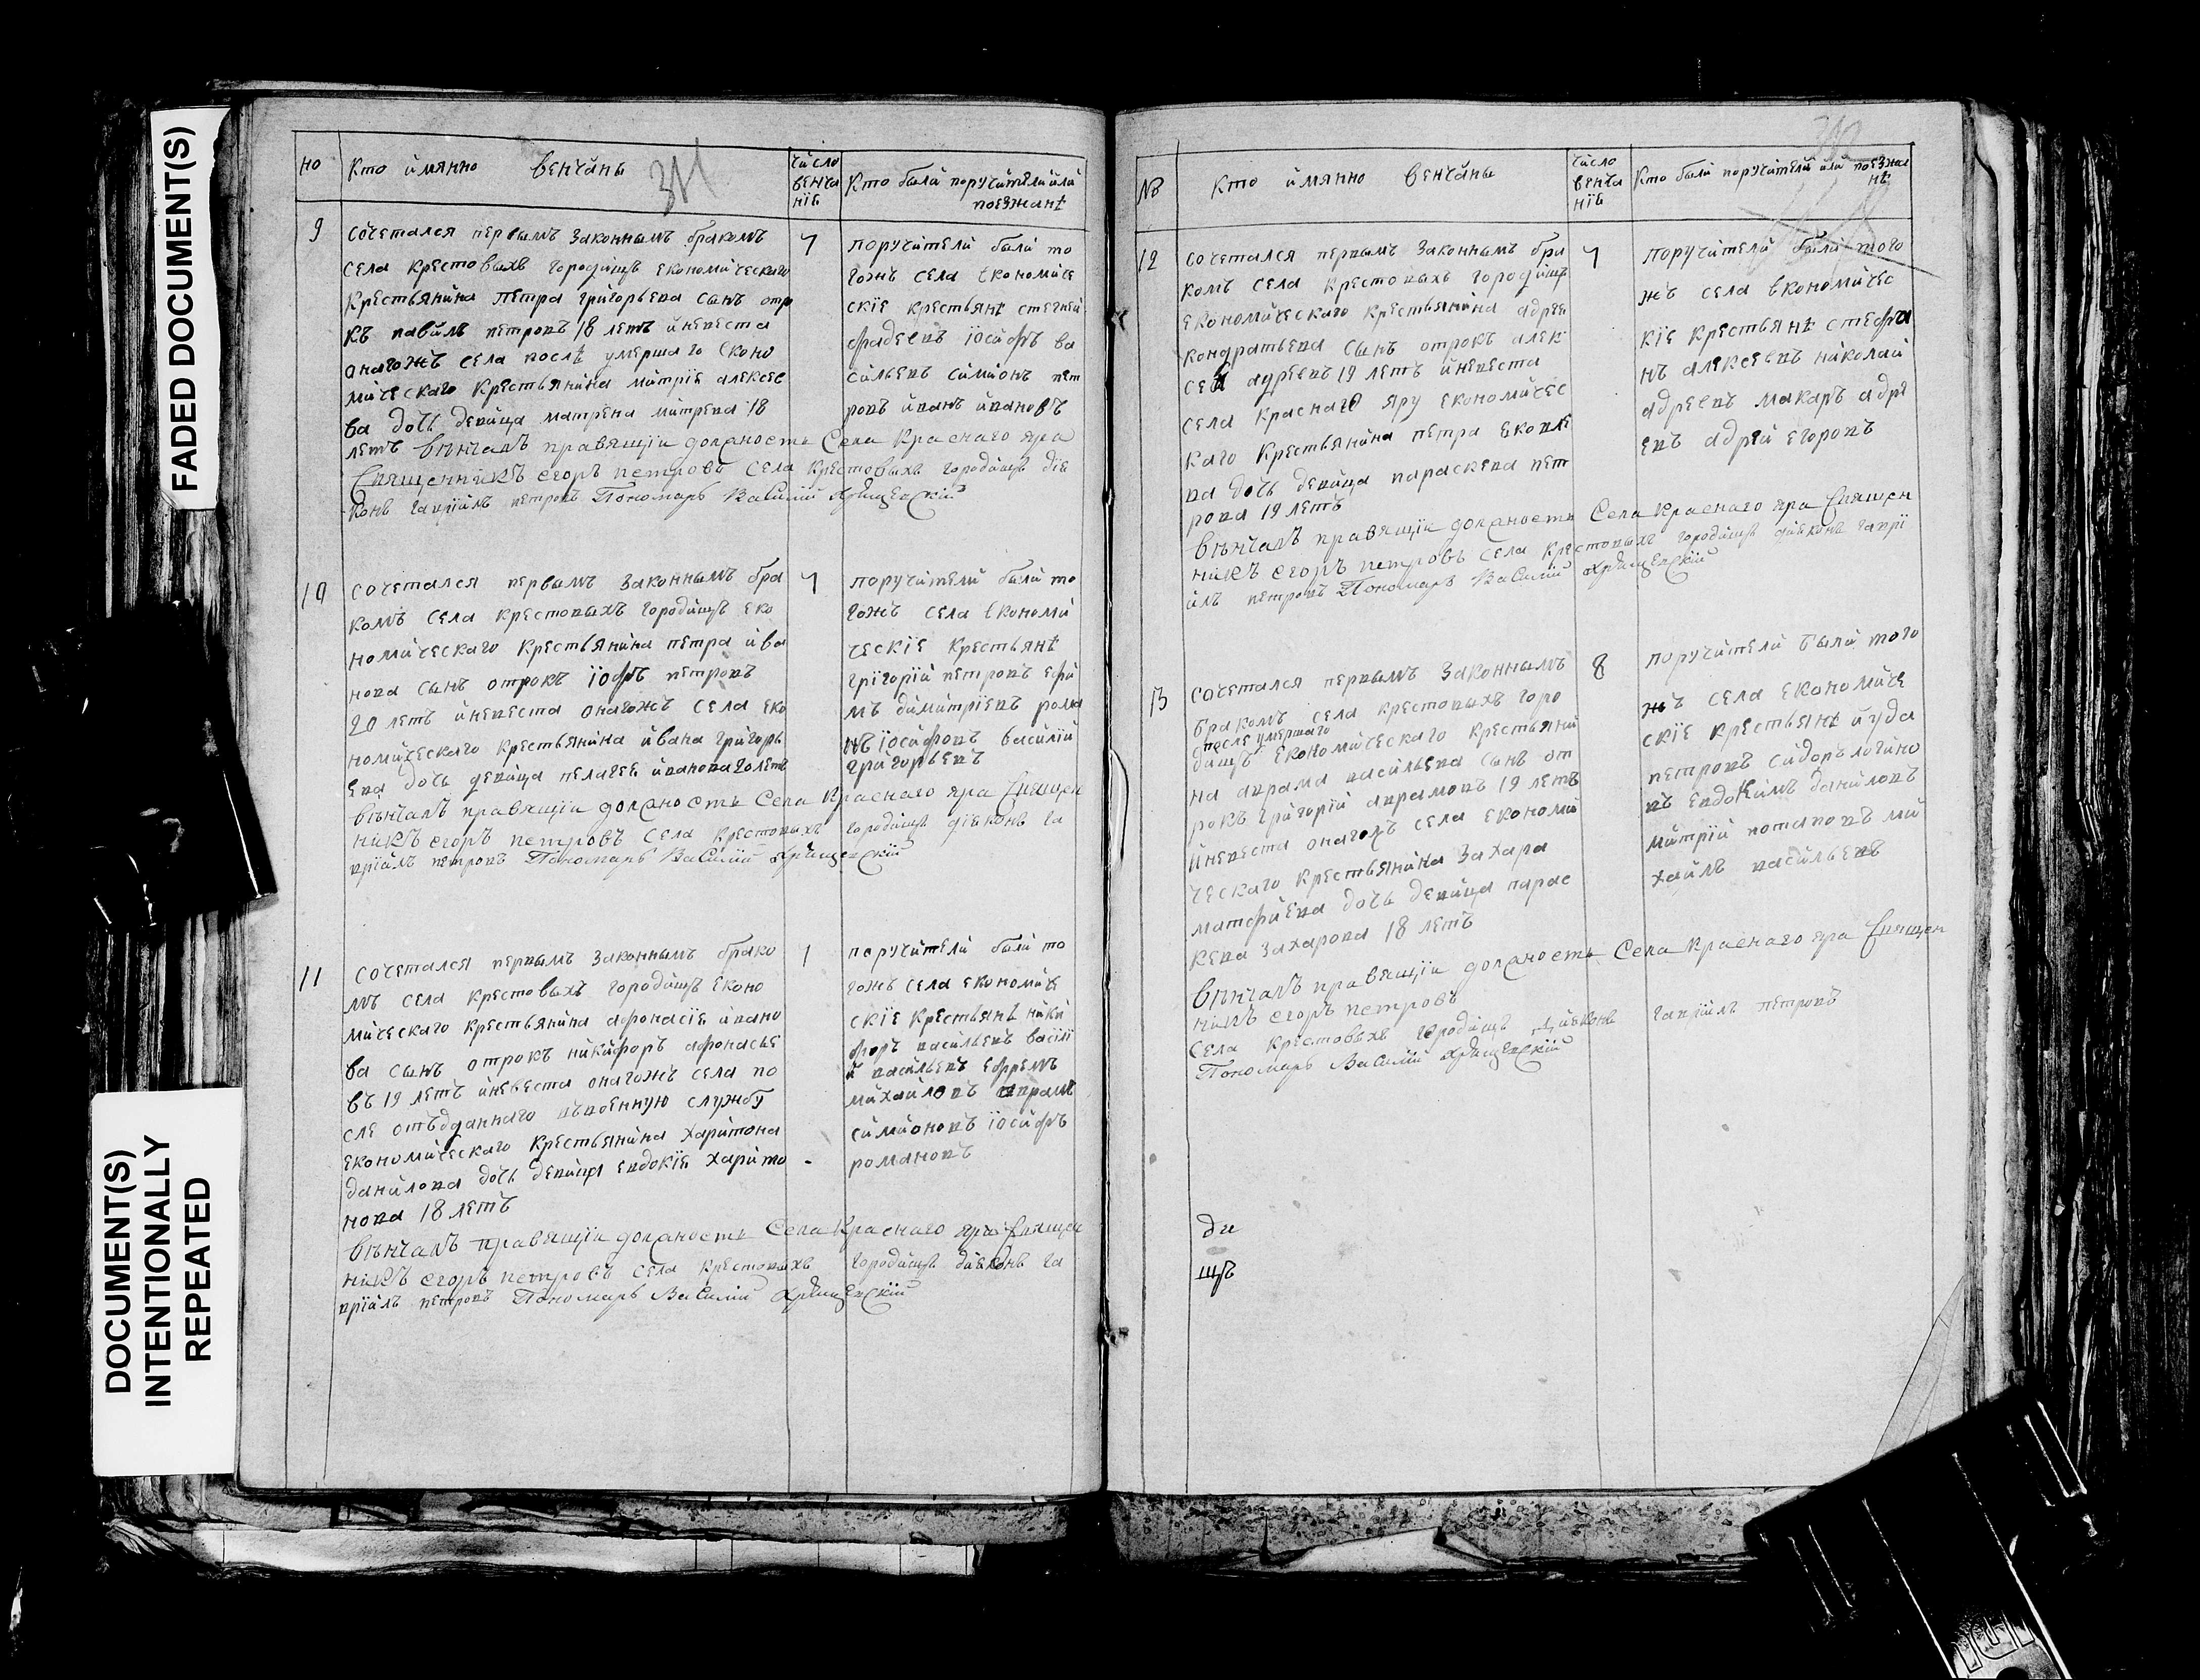 FADED DOCUMENT(S)
DOCUMENT(S)
INTENTIONALLY
REPEATED
но
Кто имянно венчаны
311
число
венча
ніе
Кто были поручители или
поезжанѣ
9
сочетался первымъ законнымъ бракомъ
села крестовыхъ городищъ економического
крестьянина петра григорьева сынъ отро
къ павилъ петровъ 18 летъ иневеста
онагожъ села послѣ умершаго еконо
мического крестьянина митріе алексее
ва дочь девица матрена митрева 18
летъ венчалъ правящіи должность Села Краснаго яра
Священникъ егоръ петровъ села крестовыхъ городищъ дія
конъ гавріилъ петровъ Пономарь Василій
7
поручители были то
гожъ села економиче
скіе крестьянѣ
фадеевъ іосифъ ва
сильевъ симионъ пет
ровъ иванъ ивановъ
10
сочетался первымъ законнымъ бра
комъ села крестовыхъ городищъ еко
номического крестьянина петра ива
нова сынъ отрокъ іофъ петровъ
20 летъ иневеста онагожъ села эко
номического крестьянина ивана григорь
ева дочь девица пелагее иванова 20 летъ
венчалъ правящіи должность Села Краснаго яра Священ
никъ егоръ петровъ села крестовыхъ городищъ діяконъ га
вріилъ петровъ Пономарь Василій
7
поручители были то
гожъ села економи
ческіе крестьянѣ
григорій петровъ ефи
мъ димитріевъ рома
нъ іосифовъ василій
григорьевъ
11
сочетался первымъ законнымъ брако
мъ села крестовыхъ городищъ еконо
мического крестьянина афонасіе ивано
ва сынъ отрокъ никифоръ афонасье
въ 19 летъ иневеста онагожъ села по
сле отъданнаго въвоенную службу
економического крестьянина харитона
данилова дочь девица евдокіе харито
нова 18 летъ
венчалъ правящіи должность Села Краснаго яра Священ
никъ егоръ петровъ села крестовыхъ городищъ діяконъ га
вріилъ петровъ Пономарь Василій
1
поручители были то
гожъ села економиче
скіе крестьянѣ ники
форъ васильевъ васілі
й васильевъ ефремъ
михайловъ аврамъ
симионовъ іосифъ
романовъ
№
Кто имянно венчаны
число
венча
ніе
Кто были поручители или поезжа
нѣ
12
сочетался первымъ законнымъ бра
комъ села крестовыхъ городищъ
економического крестьянина адрее
кондратьева сынъ отрокъ алек
сей адреевъ 19 летъ иневеста
села краснаго яру економичес
каго крестьянина петра яковле
ва дочь девица параскева пет
рова 19 летъ
венчалъ правящіи должность Села Краснаго яра Священ
никъ егоръ петровъ села крестовыхъ городищъ діяконъ гаврі
илъ петровъ Пономарь Василій
7
поручители были того
жъ села економичес
кіе крестьянѣ стефа
нъ алексеевъ николай
адреевъ макаръ адре
евъ адрей егоровъ
13
сочетался первымъ законнымъ
бракомъ села крестовыхъ горо
после умершаго
дищъ економического крестьяни
на аврама васильева сынъ от
рокъ григорій аврамовъ 19 летъ
иневеста онагожъ села економи
ческаго крестьянина захара
матфиева дочь девица парас
кева захарова 18 летъ
венчалъ правящіи должность Села Краснаго яра Священ
никъ егоръ петровъ
Села крестовыхъ городищъ діяконъ гавріилъ петровъ
Пономарь Василій
8
поручители были того
жъ села економиче
скіе крестьянѣ иуда
петровъ сидоръ логино
въ евдокимъ даниловъ
митрій потаповъ ми
хайлъ васильевъ
ди
щъ